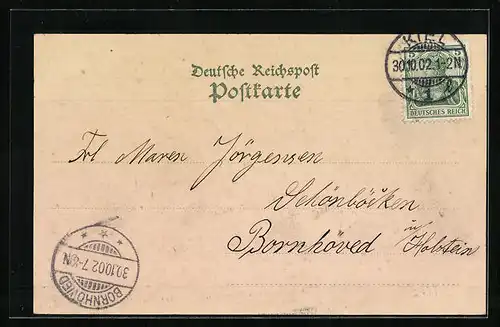 KIEL
30.10.02.1-2N
* 1 z
DEUTSCHES REICH
Deutsche Reichspost
Postkarte
Frl Maren Jörgensen
Schönböcken
Bornhöved in Holstein
BORNHÖVED
30.10.02 7-8N